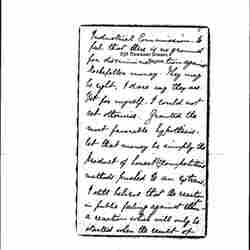 Industrial Commission to
feel that there is no ground
for discrimination against
Rockefeller money. They may
be right, I dare say they are
yet for myself, I could not
act otherwise. Granted the
most favorable hypothesis.
let that money be simply the
product of honest competitive
methods pushed to an extreme,
I still believe that the reaction
in public feeling against
a reaction which will only be
started when the result of